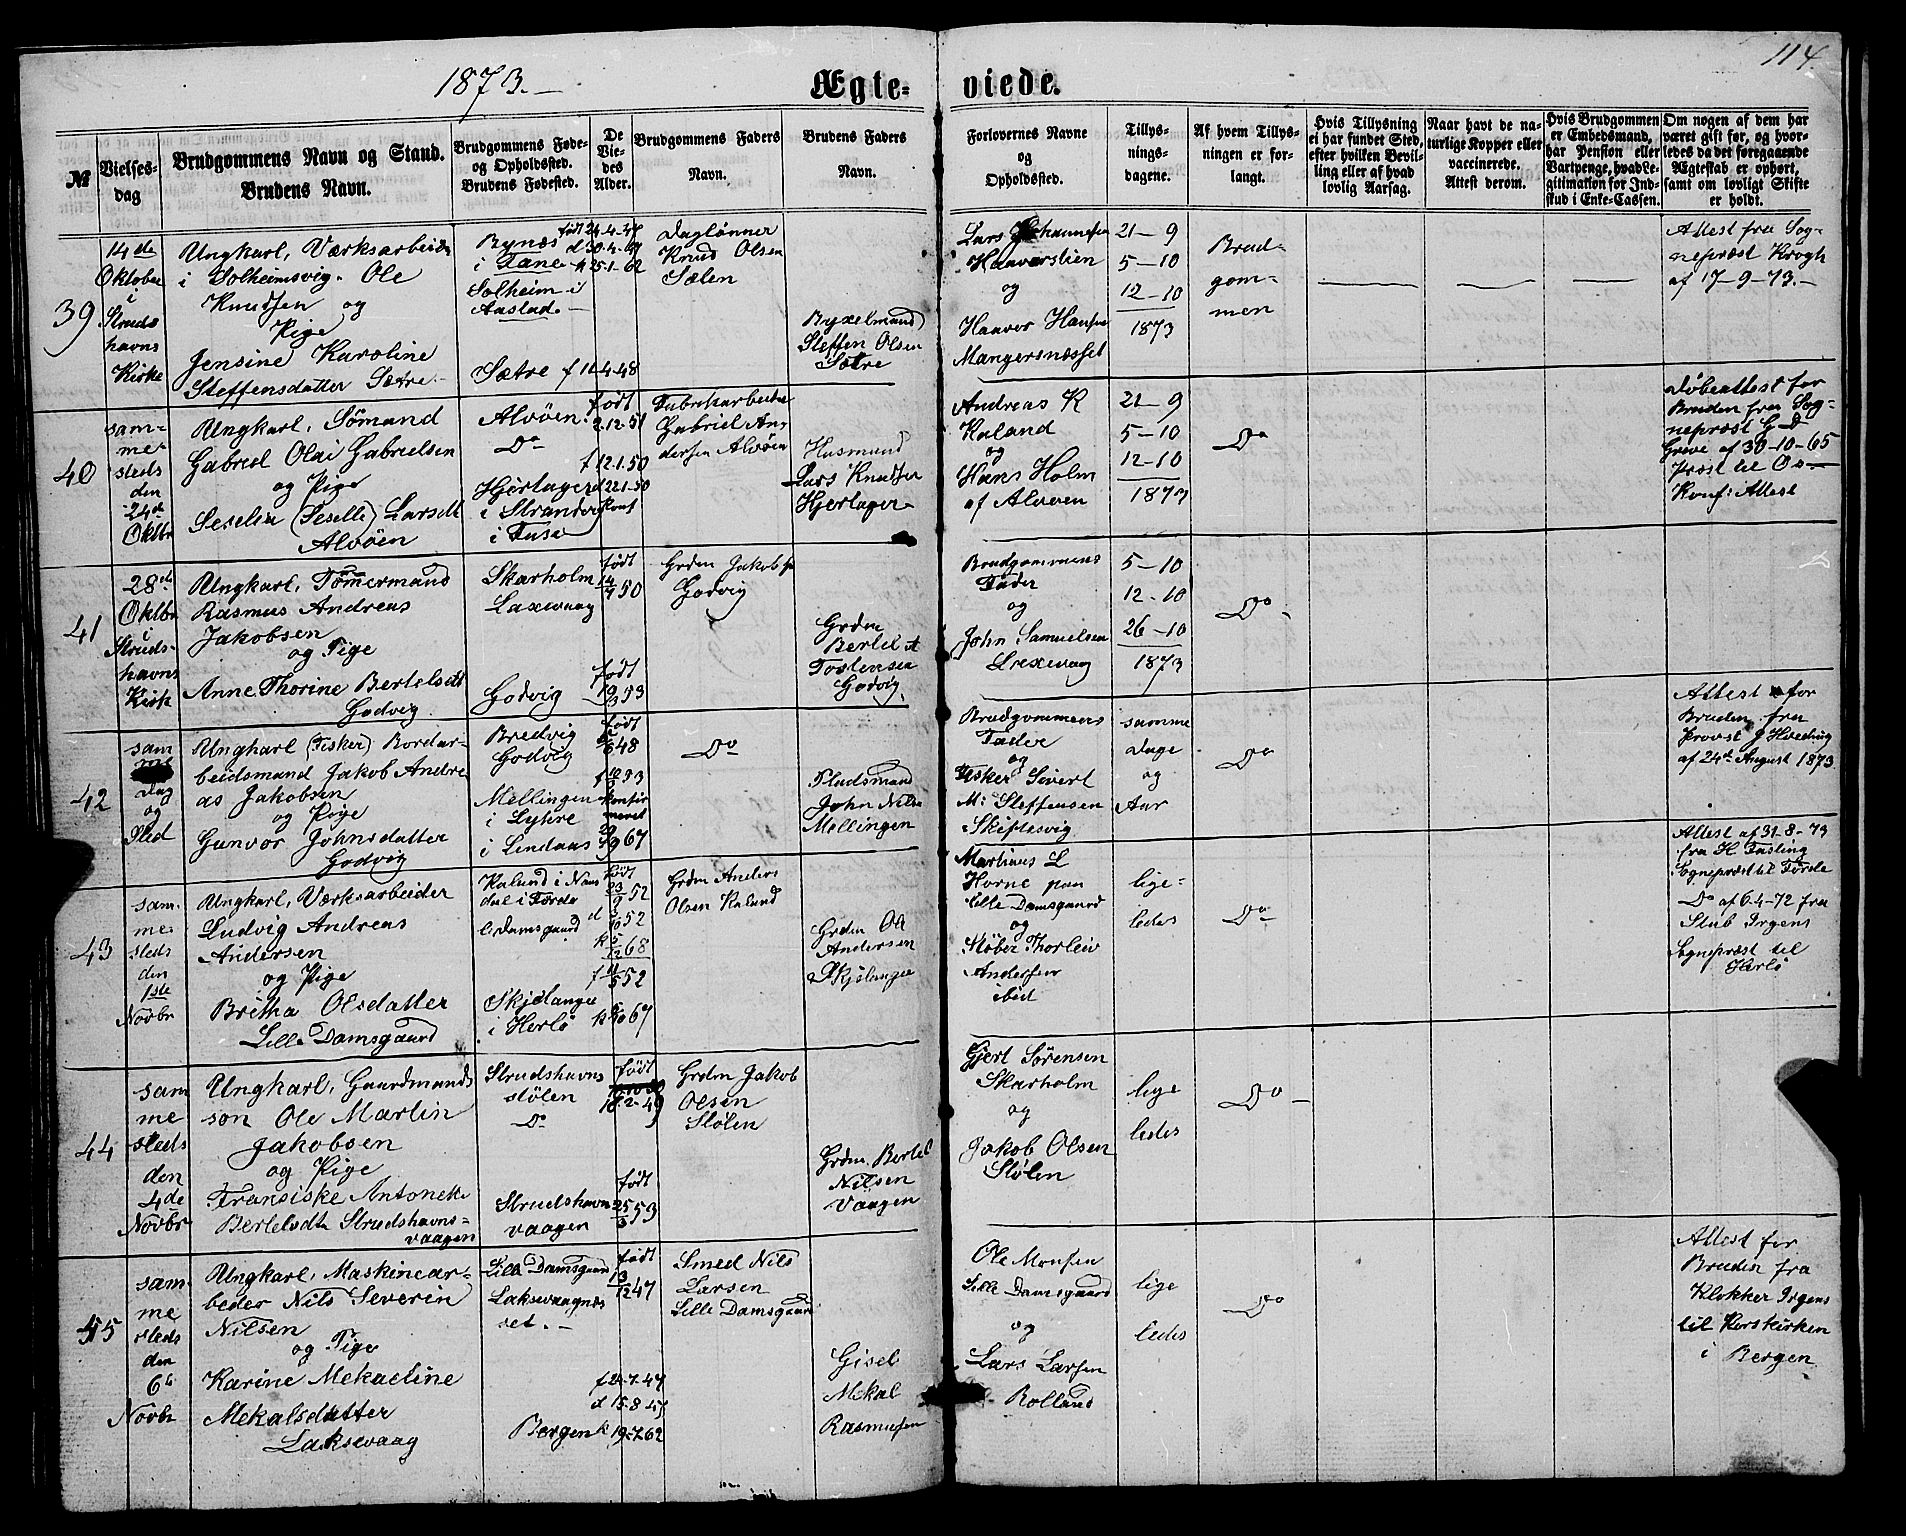 1873.
Ægte-
viede.
114.
№
Vielses-
dag
Brudgommens Navn og Stand.
Brudens Navn.
Brudgommens Føde-
og Opholdssted.
Brudens Fødested.
De
Vie-
des
Alder.
Brudgommens Faders
Navn.
Brudens Faders
Navn.
Forlovernes Navne
og
Opholdssted.
Tillys-
nings-
dagene.
Af hvem Tillys-
ningen er for-
langt.
Hvis Tillysning
ei har fundet Sted,
efter hvilken Bevil-
ling eller af hvad
lovlig Aarsag.
Naar havt de na-
turlige Kopper eller
vaccinerede.
Attest derom.
Hvis Brudgommen
er Embedsmand,
har Pension eller
Vartpenge, hvad Le-
gitimation for Ind-
skud i Enke-Cassen.
Om nogen af dem har
været gift før, og hvor-
ledes da det foregaaende
Ægteskab er ophørt,
samt om lovligt Skifte
er holdt.
39
14de
Oktober
i
Struds
havns
Kirke
Ungkarl, Værksarbeider
i Solheimsvig. Ole
Knudsen og
Pige
Jensine Karoline
Steffensdatter Sætre.
Bynæs
i Fane
Solheim i
Aastad.
Sætre
født 24-4-47
d 30-4-47
k 25-1-62
f 11-4-48
Daglønner
Knud Olsen
Sælen
Byxelmand
Steffen Olsen
Sætre
Lars Johannesen
Haaverslien
og
Haavor Hansen
Mangersnæsset
21-9
5-10
12-10
1873
Brud-
gom-
men
Attest fra Sog-
nepræst Krogh
af 17-9-73.
40
sam-
me-
steds
den
24de
Oktbr
Ungkarl, Sømand
Gabriel Olai Gabrielsen
og Pige
Seselia (Seselle) Larsdt
Alvøen
Alvøen.
Do
Hjertager
i Strandv
i Fuse
født
2.12.51
f 12.1.50
d 22.1.50
Konf
Fabrikarbeider
Gabriel An-
dersen Alvøen
Husmand
Lars Knudsen
Hjertager
Andreas K
Kaland
og
Hans Holm
af Alvøen
21-9
5-10
12-10
1873
Do
Døbeattest for
Bruden fra Sog-
nepræst G D
Greve af 30-10-65
Præst til Os
Konf: Attest
41
28de
Oktbr
i
Struds-
havns
Kirk
Ungkarl, Tømmermand
Rasmus Andreas
Jakobsen
og Pige
Anne Thorine Bertelsdt
Godvig.
Skarholm
Laxevaag
Godvig
født
14/4 50
født
19/3 53
Grdm Jakob
Godvig
Grdm
Bertel A
Tostensen
Godvig
Brudgommens
Fader
og
John Samuelsen
Laxevaag
5-10
12-10
26-10
1873
Do
42
sam
Dag
og
Sted
Ungkarl (Fisker) Bordar-
beidsmand Jakob Andre
as Jakobsen
og Pige
Gunvor Johnsdatter
Godvig
Bredvig
Godvig
Mellingen
i Lykre
i Lindaas
født
48
konfir
meret
67
Do
Pladsmand
John Nils
Mellingen
Brudgommens
Fader
og
Fisker Sivert
M: Steffensen
Skiftesvig
samme
Dage
og
Aar
Do
Attest for
Bruden fra
Provst J Hvoslef
af 24de August 1873
43
sam-
me-
steds
den
1ste
Novbr
Ungkarl, Værksarbeider
Ludvig Andreas
Andersen
og Pige
Britha Olsdatter
Lille Damsgaard
Kaland i Naus
dal i Førde
l Damsgaard
Skjelanger
i Herlø
født
23/9 52
d 3/10 52
k 5/12 68
f 11/5 52
k 6/10 67
Grdm Anders
Olsen Kaland
Grdm Ole
Andersen
Skjelanger
Martinus L
Horne paa
Lille Damsgaard
og
Støber Thorleiv
Andersen
ibid
lige-
ledes
Do
Attest af 31-8-73
fra H Fasting
Sognepræst til Førde
Do af 6-4-72 fra
Stub Irgens
Sognepræst til
Herlø
44
sam
me
steds
den
4de
Novbr
Ungkarl, Gaardmands
søn Ole Martin
Jakobsen
og Pige
Fransiske Antonette
Bertelsdt Strudshavns-
vaagen
Strudshavns
stølen
Do
Strudshavns
vaagen
født
18-2-49
født
25/3 53
Grdm Jakob
Olsen
Stølen
Grdm. Bertel
Nilsen
Vaagen
Gjert Sørensen
Skarholm
og
Jakob Olsen
Stølen
lige
ledes
Do
45
sam-
me
steds
den
6te
Novbr
Ungkarl, Maskinear-
beider Nils Severin
Nilsen
og Pige
Karine Mekaeline
Mekalsdatter
Laksevaag
Lille Damsgaard
Laksevaagnæs
set.
Bergen
født
13/12 47
f 24-7-47
d 15-8-47
k 19-7-62
Smed Nils
Larsen
Lille Damsgaard
Gisel
Mekal
Rasmussen
Ole Monsen
Lille Damsgaard
og
Lars Larsen
Rolland
lige
ledes
Do
Attest for
Bruden fra
Klokker Irgens
til Korskirken
i Bergen